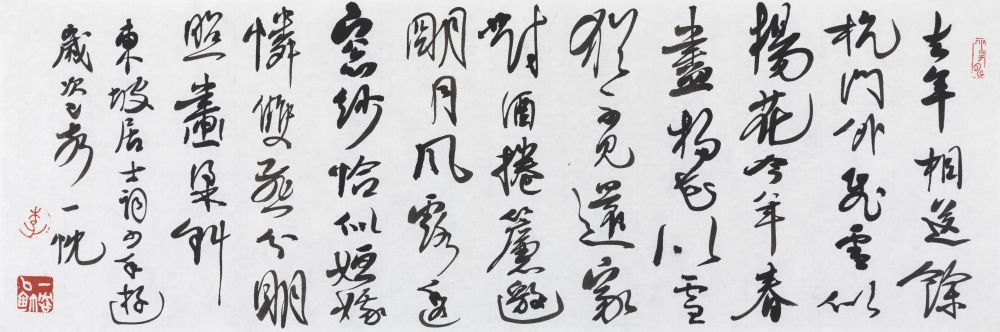 去年相送餘
杭門外飛雪似
楊花今年春
盡楊花似雪
猶不見還家
對酒捲簾邀
明月風露透
窗紗恰似姮娥
憐雙燕分明
照畫梁斜
東坡居士詞少年遊
歲次 一忱
李